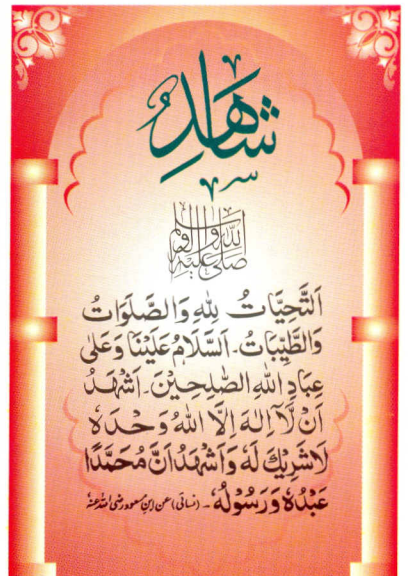 شَاهِدٌ
صلی اللہ علیہ وآلہ وسلم
اَلتَّحِيَّاتُ لِلّٰهِ وَالصَّلَوَاتُ
وَالطَّيِّبَاتُ۔ اَلسَّلَامُ عَلَيْنَا وَعَلٰى
عِبَادِ اللهِ الصّٰلِحِيْنَ۔ اَشْهَدُ
اَنْ لَّآ اِلٰهَ اِلَّا اللهُ وَحْدَهٗ
لَا شَرِيْكَ لَهٗ وَاَشْهَدُ اَنَّ مُحَمَّدًا
عَبْدُهٗ وَرَسُوْلُهٗ۔ (نسائی) عن ابن مسعود رضی اللہ عنہ